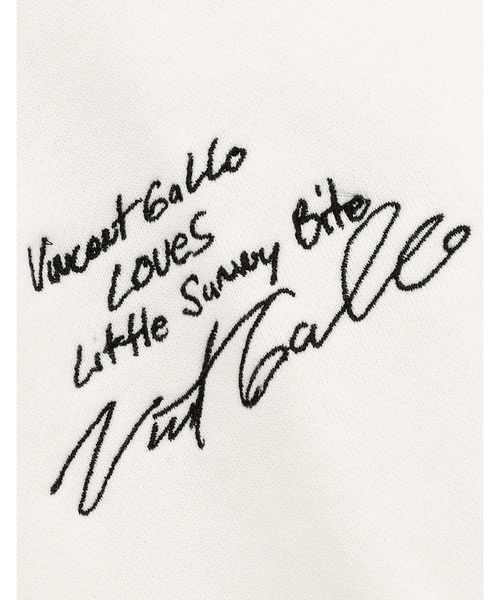 Vincent Gallo
LOVES
Little Sunny Bite
Vint Gallo